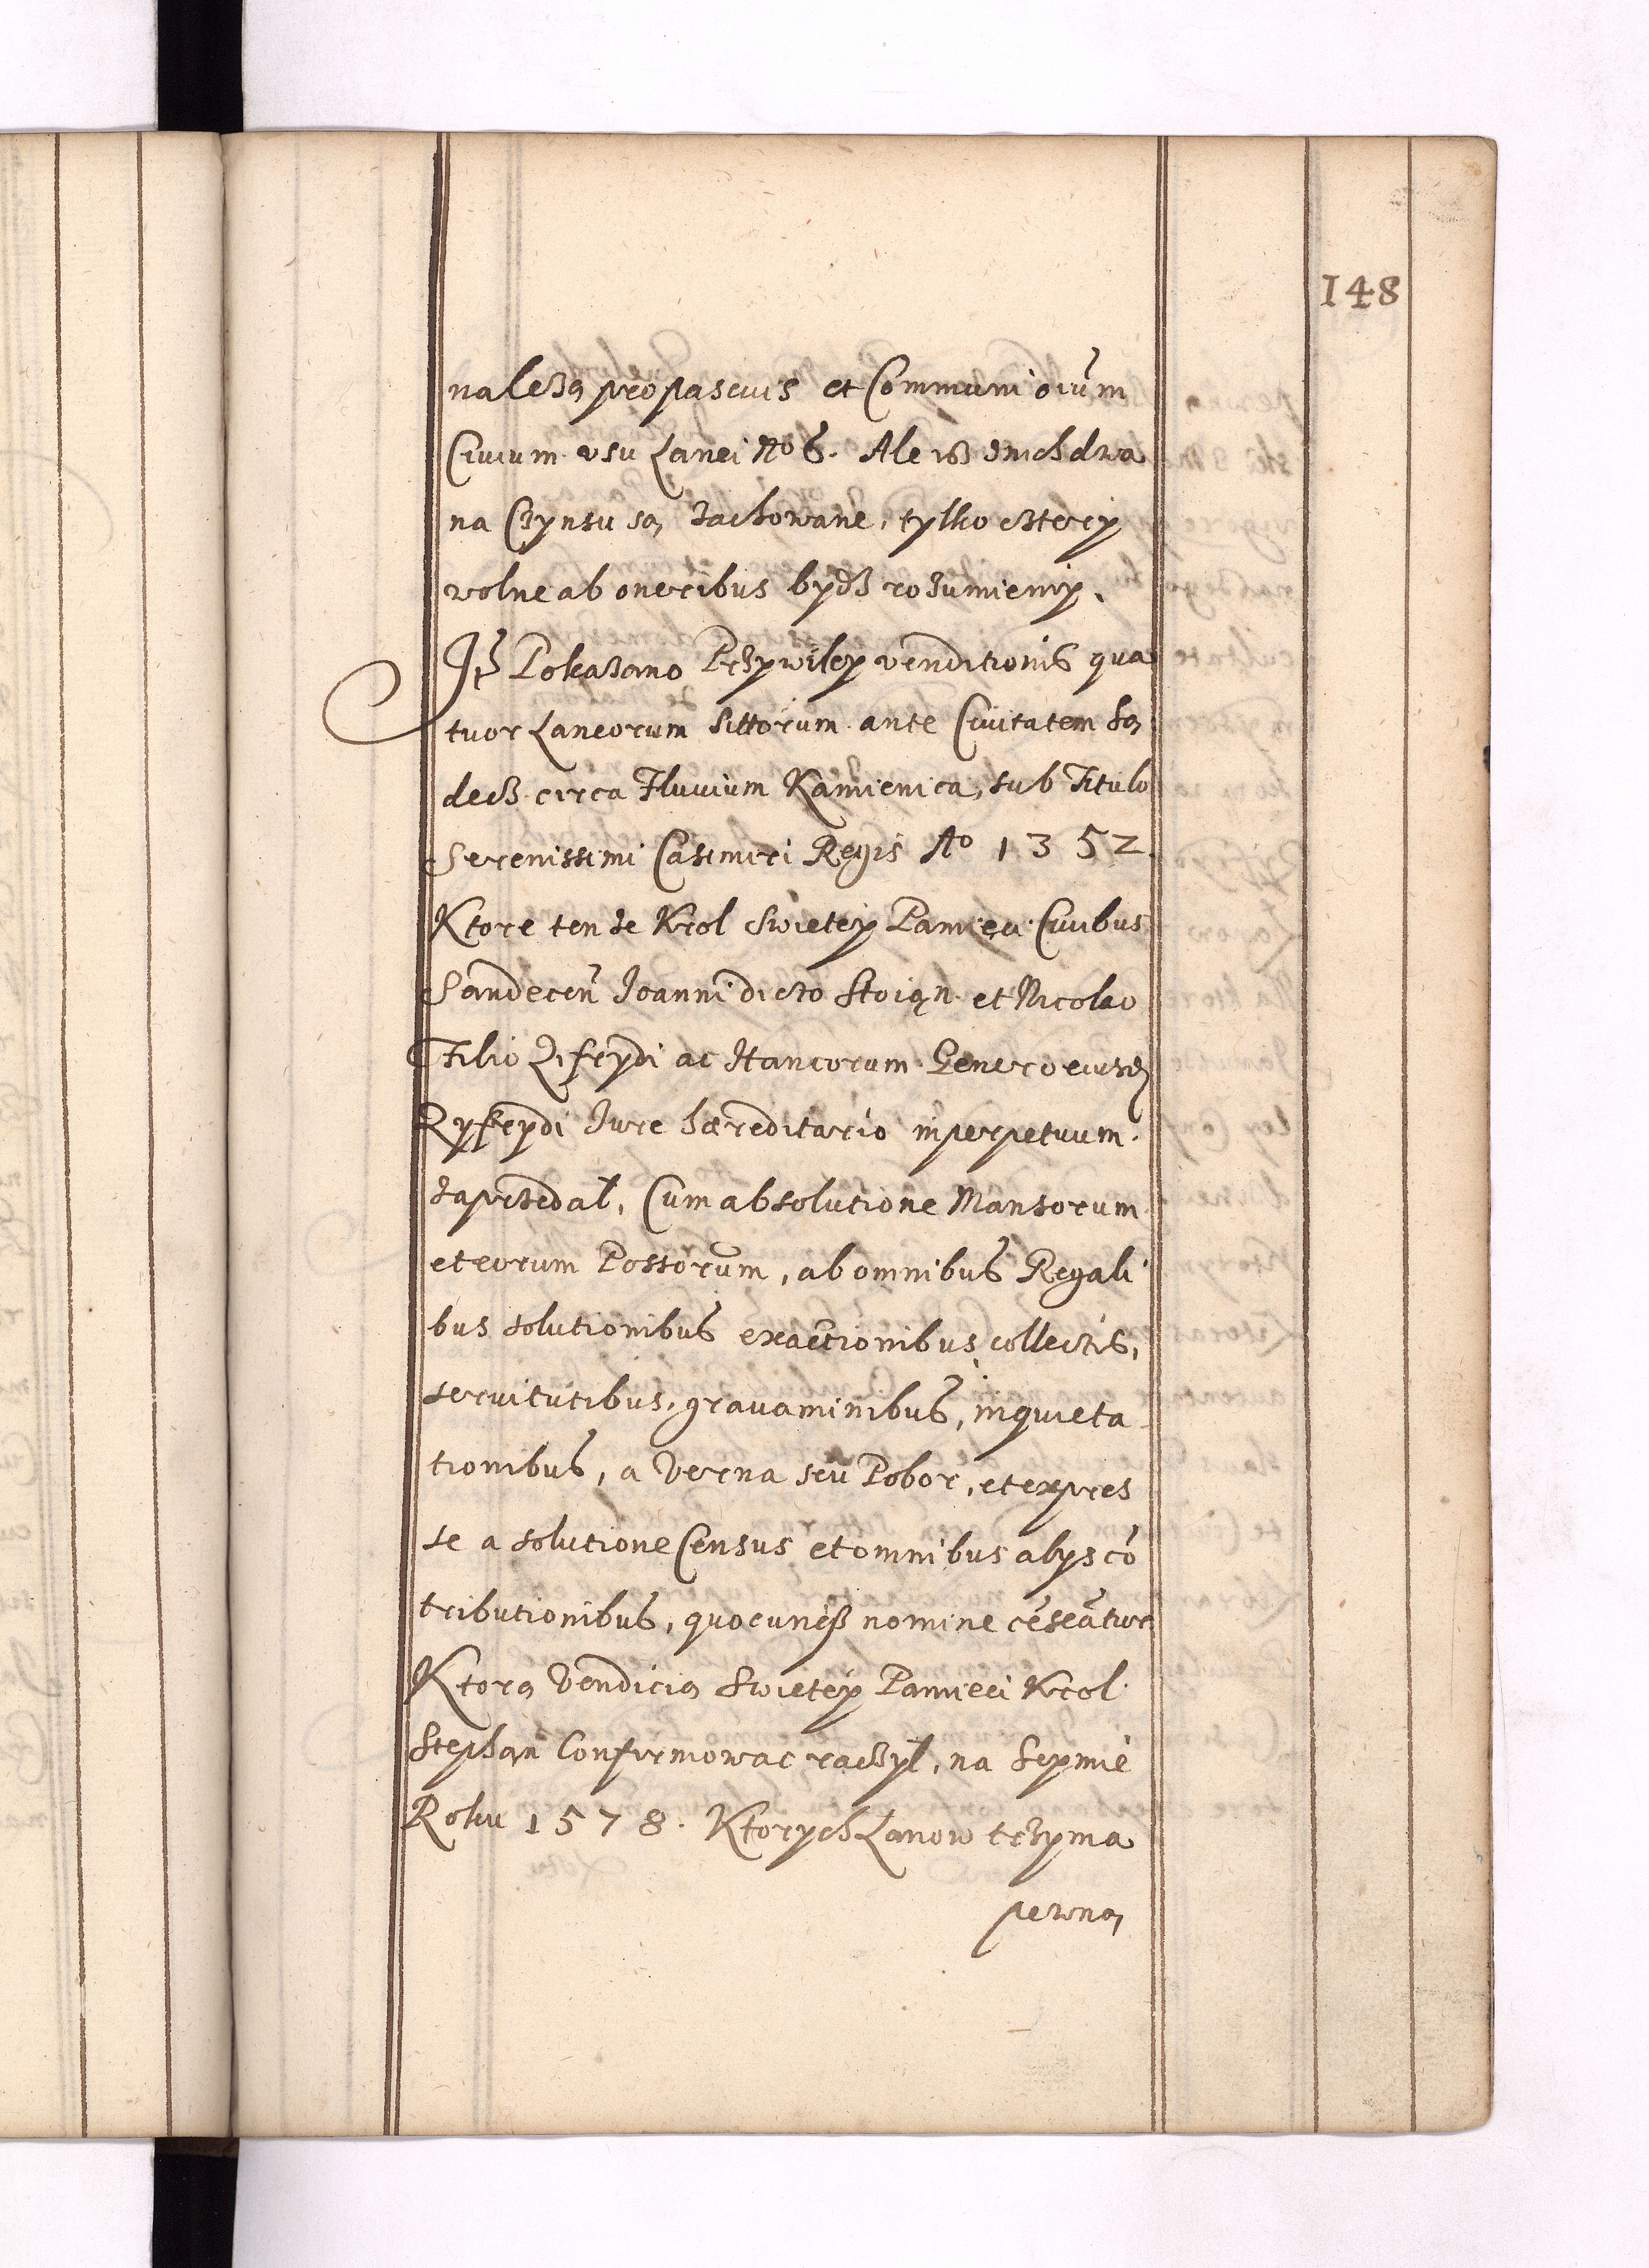 148
należą pro pascuis et Communi oiũm
Ciuium vsu Łanei No 6. Ale iż z nich dwa
na Czynsu są zachowane, tylko cztery
wolne ab oneribus bydź rozumiemy.
It Pokazano Przywiley venditionis qua
tuor Laneorum sittorum ante Ciuitatem Są
decz circa Fluuium Kamienica, sub Titulo
Serenissimi Casimiri Regis Ao 1352.
Ktore ten ze Krol Swietey Pamięci Ciuibus
Sandeceñ Joanni dicto Stoign et Nicolao
Filio Zifrydi ac Hancorum Genero eiusd
Zyfrydi Jure hæreditario in perpetuum
zaprzedał, Cum absolutione Mansorum
et eorum Possorum, ab omnibus Regali
bus solutionibus exactionibus, collectis,
seruitutibus, grauaminibus, inquieta
tionibus, a Verna seu Pobor, et expres
se a solutione Census et omnibus alys cõ
tributionibus, quocunq nomine cẽseãtur
Ktorą Vendicią Swietey Pamięci Krol
Stephan Confirmowac raczył, na Seymie
Roku 1578. Ktorych Łanow trzyma
pewną